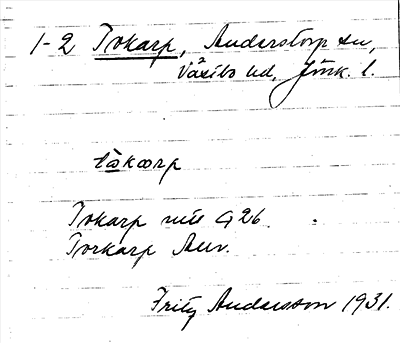 1-2 Tokarp, Anderstorp sn,
Västbo hd, Jönk. l.
tɷ̀kɑrp
Tokarp
Torkarp
Fritz Andersson 1931.